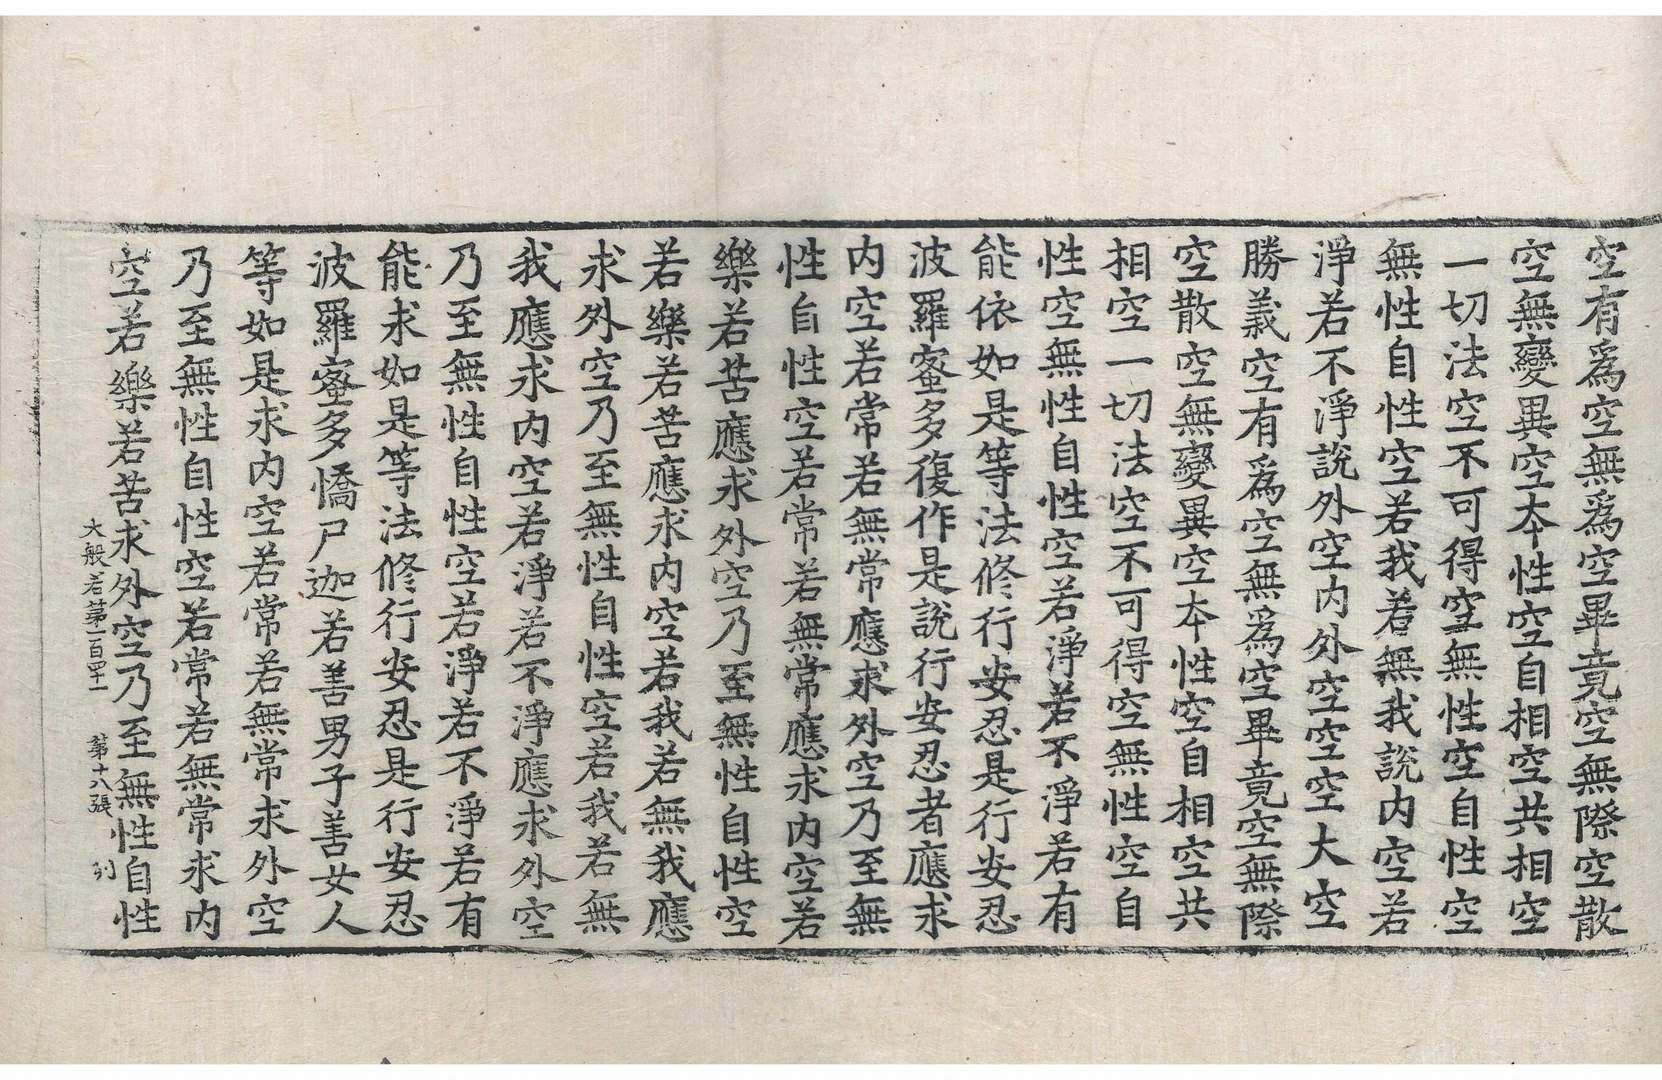 空有爲空無爲空畢竟空無際空散
空無變異空本性空自相空共相空
一切法空不可得空無性空自性空
無性自性空若我若無我說内空若
淨若不淨說外空内外空空空大空
勝義空有爲空無爲空畢竟空無際
空散空無變異空本性空自相空共
相空一切法空不可得空無性空自
性空無性自性空若淨若不淨若有
能依如是等法修行安忍是行安忍
波羅蜜多復作是說行安忍者應求
内空若常若無常應求外空乃至無
性自性空若常若無常應求内空若
樂若苦應求外空乃至無性自性空
若樂若苦應求内空若我若無我應
求外空乃至無性自性空若我若無
我應求内空若淨若不淨應求外空
乃至無性自性空若淨若不淨若有
能求如是等法修行安忍是行安忍
波羅蜜多憍尸迦若善男子善女人
等如是求内空若常若無常求外空
乃至無性自性空若常若無常求内
空若樂若苦求外空乃至無性自性
大般若第一百四十一 第十八張